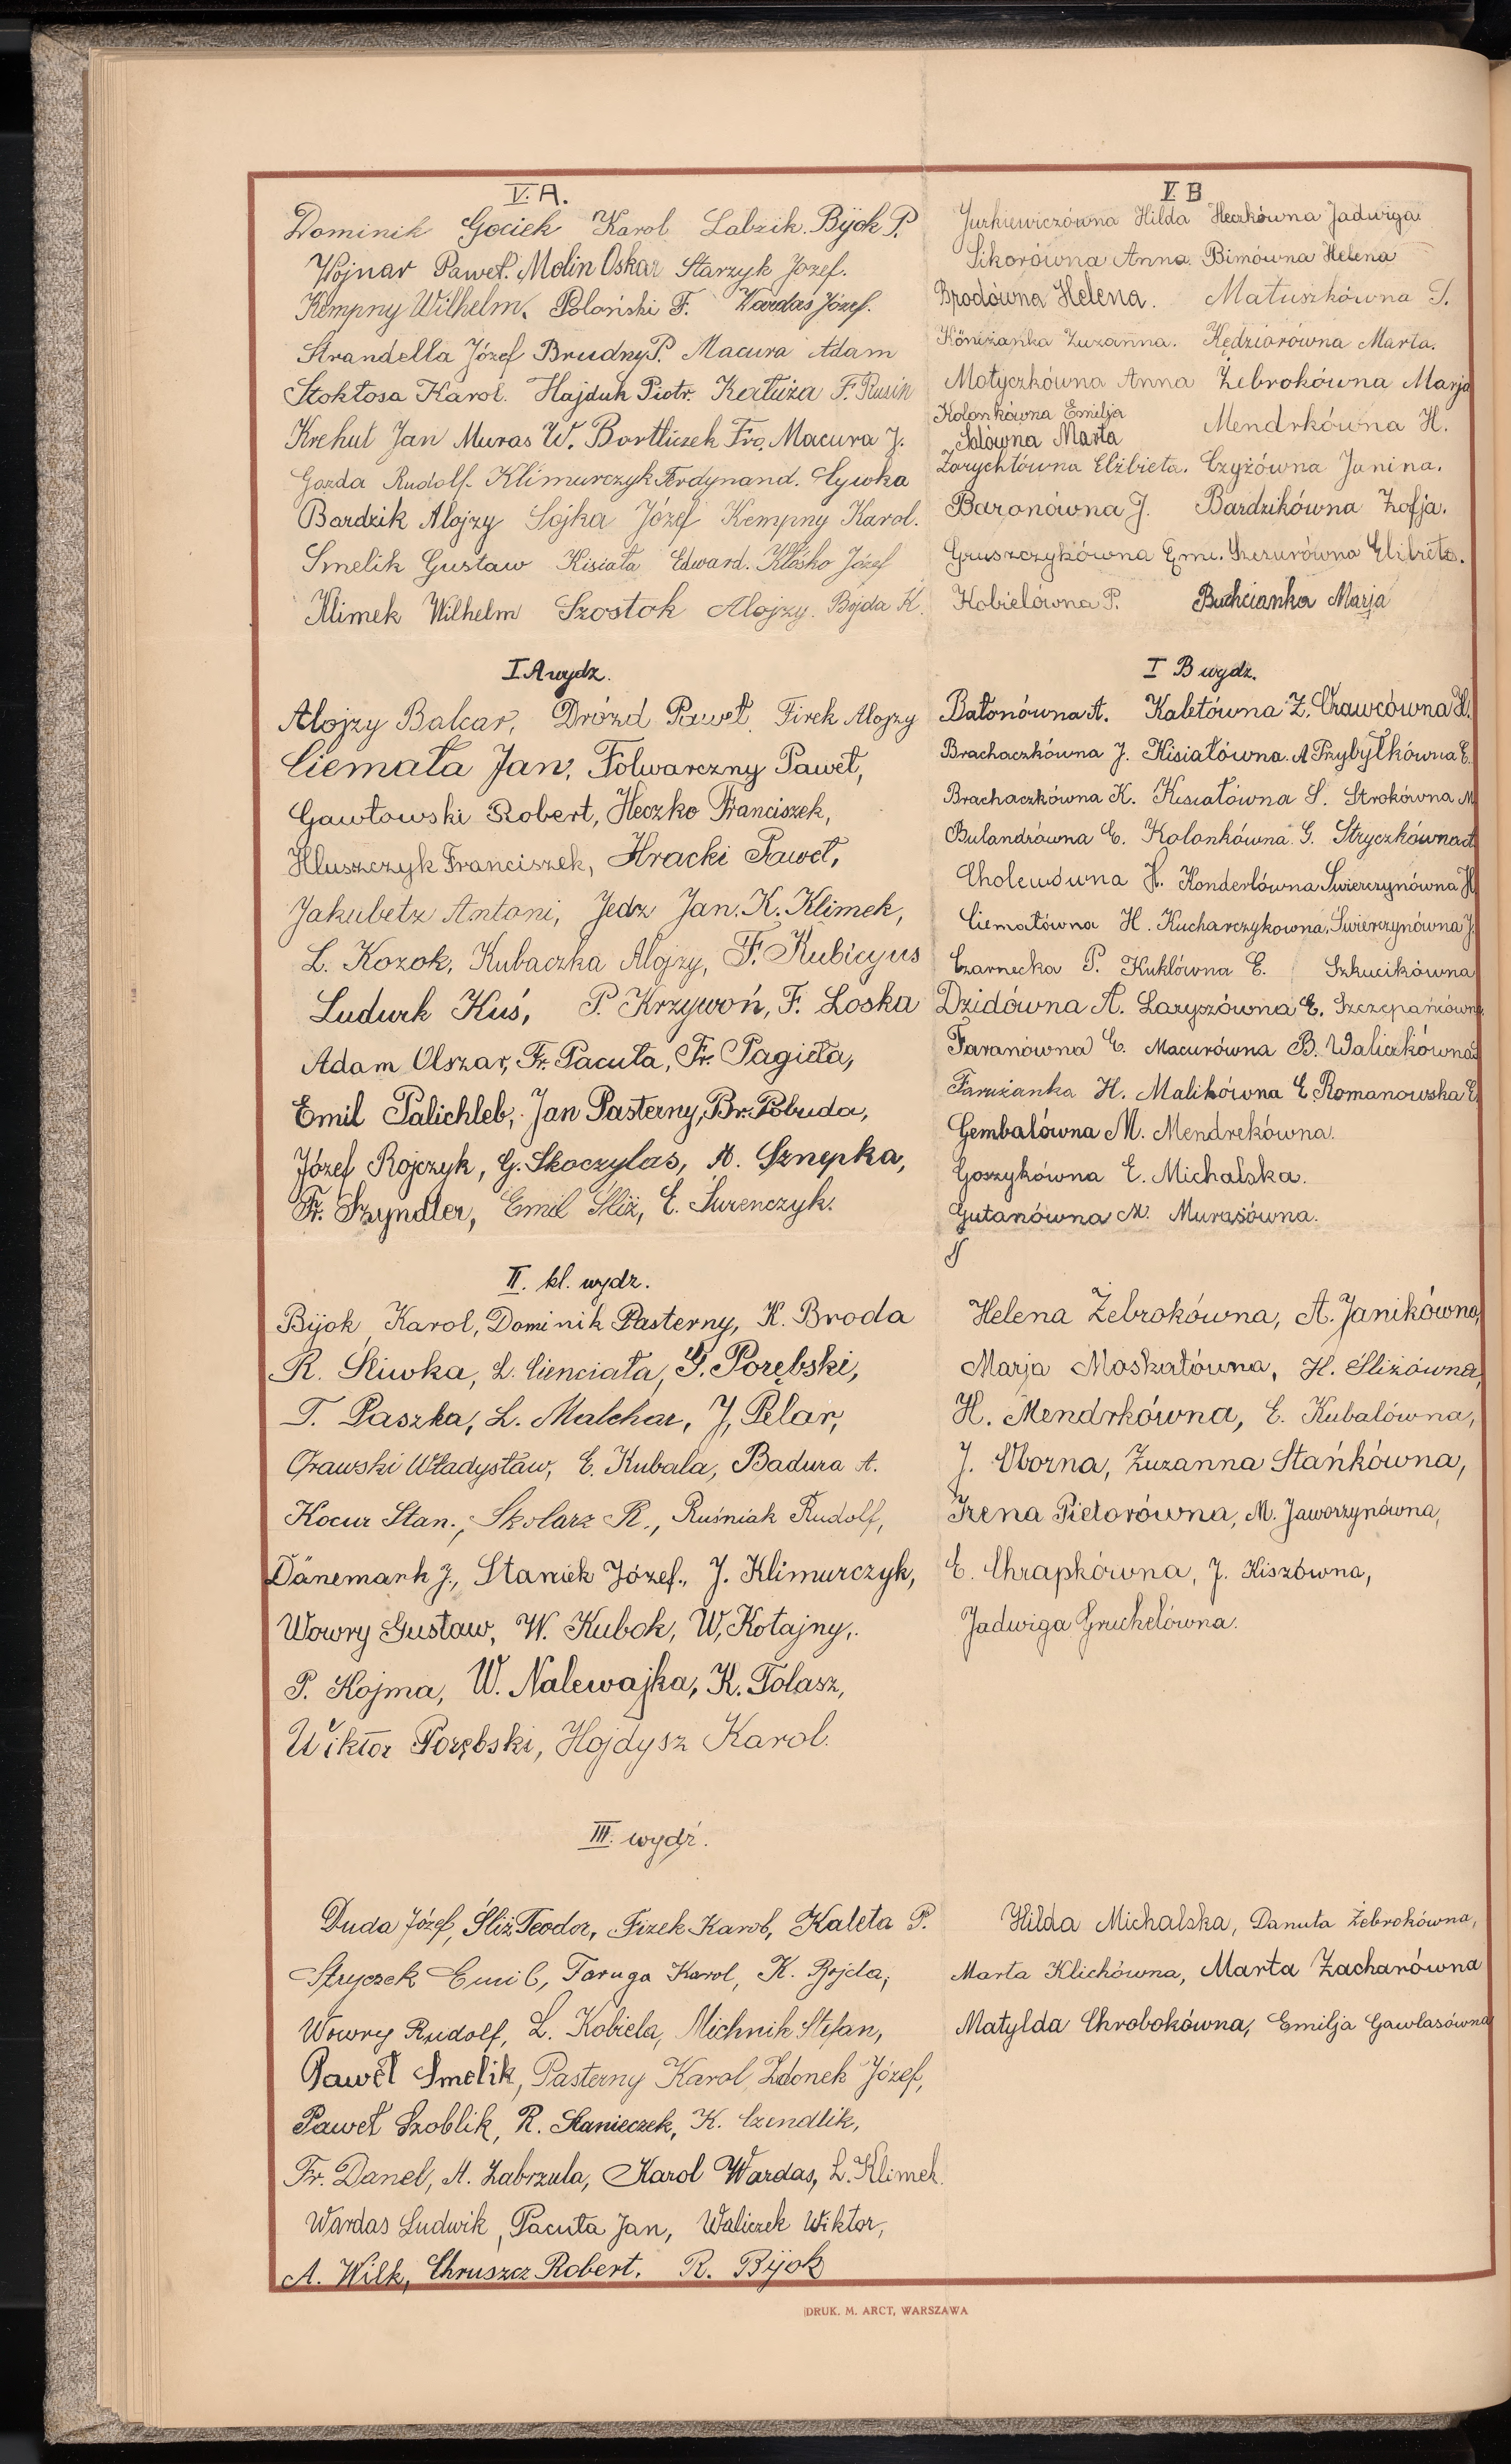 V. A.
Dominik Gociek Karol Labzik. Bijok P.
Wojnar Paweł. Molin Oskar Starzyk Józef.
Kempny Wilhelm. Poloński F. Wardas Józef.
Strandella Józef Brudny P. Macura Adam
Stokłosa Karol. Hajduk Piotr. F. Rusin
Krehut Jan Muras W. Bortliczek Fr. Macura J.
Gazda Rudolf. Klimurczyk Ferdynand. Cywka
Bardzik Alojzy Sojka Józef Kempny Karol.
Smelik Gustaw Kisiała Edward. Kłósko Józef
Klimek Wilhelm Szostok Alojzy. Bojda K.
V. B
Jurkiewiczówna Hilda Heczkówna Jadwiga
Sikorówna Anna Bimówna Helena
Brodówna Helena. Matuszkówna S.
Köniżanka Zuzanna. Kędziorówna Marta.
Motyczkówna Anna Żebrokówna Marja
Kolonkówna Emilja Mendrkówna H.
Salówna Marta
Zarychtówna Elżbieta. Czyżówna Janina.
Baronówna J. Bardzikówna Zofja.
Gruszczykówna Emi. Szczurówna
Kobielówna P. Buchcianka Marja
I A wydz.
Alojzy Balcar, Drózd Paweł, Firek Alojzy
Ciemała Jan, Folwarczny Paweł,
Gawłowski Robert, Heczko Franciszek,
Hluszczyk Franciszek, Hracki Paweł,
Jakubetz Antoni, Jedz Jan. K. Klimek,
L. Kozok, Kubaczka Alojzy, F. Kubicyus
Ludwik Kuś, P. Krzywoń, F. Loska
Adam Olszar, Fr. Pacuła, Fr. Pagieła,
Emil Palichleb, Jan Pasterny, Br. Pobuda,
Józef Rojczyk, G. Skoczylas, A. Sznepka,
Fr. Szyndler, Emil Śliż, E. Surenczyk.
I B wydz.
Batonówna A. Kaletówna Z. Orawcówna H.
Brachaczkówna J. Kisiałówna A Przybyłkówna E.
Brachaczkówna K. Kisiałówna S. Strokówna M
Bulandrówna E. Kolonkówna G. Stryczkówna A
Cholewówna H. Konderlówna Świerczynówna H
Ciemałówna H. Kucharczykowna. Świerczynówna J.
Czarnecka P. Kuklówna E. Szkucikówna
Dzidówna A. Laryszówna E. Szczepańcówna
Faranówna E. Macurówna B. Waliczkówna
Farużanka H. Malikówna E. Romanowska E.
Gembalówna M. Mendrekówna.
Goszykówna E. Michalska.
Gutanówna M. Murasówna.
II. kl. wydz.
Bijok Karol, Dominik Pasterny, K. Broda
R. Śliwka, L. Cienciała, G. Porębski,
T. Paszka, L. Malchar, J, Pelar,
Orawski Władysław, E. Kubala, Badura A.
Kocur Stan., Skolarz R., Ruśniak Rudolf,
Dänemark J., Staniek Józef., J. Klimurczyk,
Wowry Gustaw, W. Kubok, W, Kotajny,.
P. Kojma, W. Nalewajka, K. Tolasz,
Wiktor Porębski, Hojdysz Karol.
Helena Żebrokówna, A. Janikówna,
Marja Moskałówna, H. Śliżówna,
H. Mendrkówna, E. Kubalówna,
J. Oborna, Zuzanna Stańkówna,
Irena Pietorówna, M. Jaworzynówna,
E. Chrapkówna, J. Kiszówna,
Jadwiga Gruchelówna.
III. wydź.
Duda Józef, Śliż Teodor, Fizek Karol, Kaleta P.
Stryczek Emil, Taruga Karol, K. Bojda,
Wowry Rudolf, L. Kobiela, Michnik Stefan,
Paweł Smelik, Pasterny Karol, Zdonek Józef,
Paweł Szoblik, R. Stanieczek, K. Czendlik,
Fr. Danel, A. Zabrzula, Karol Wardas, L. Klimek.
Wardas Ludwik, Pacuła Jan, Waliczek Wiktor,
A. Wilk, Chruszcz Robert. R. Bijok
Hilda Michalska, Danuta Żebrokówna,
Marta Klichówna, Marta Zacharówna
Matylda Chrobokówna, Emilja Gawlasówna
DRUK. M. ARCT, WARSZAWA